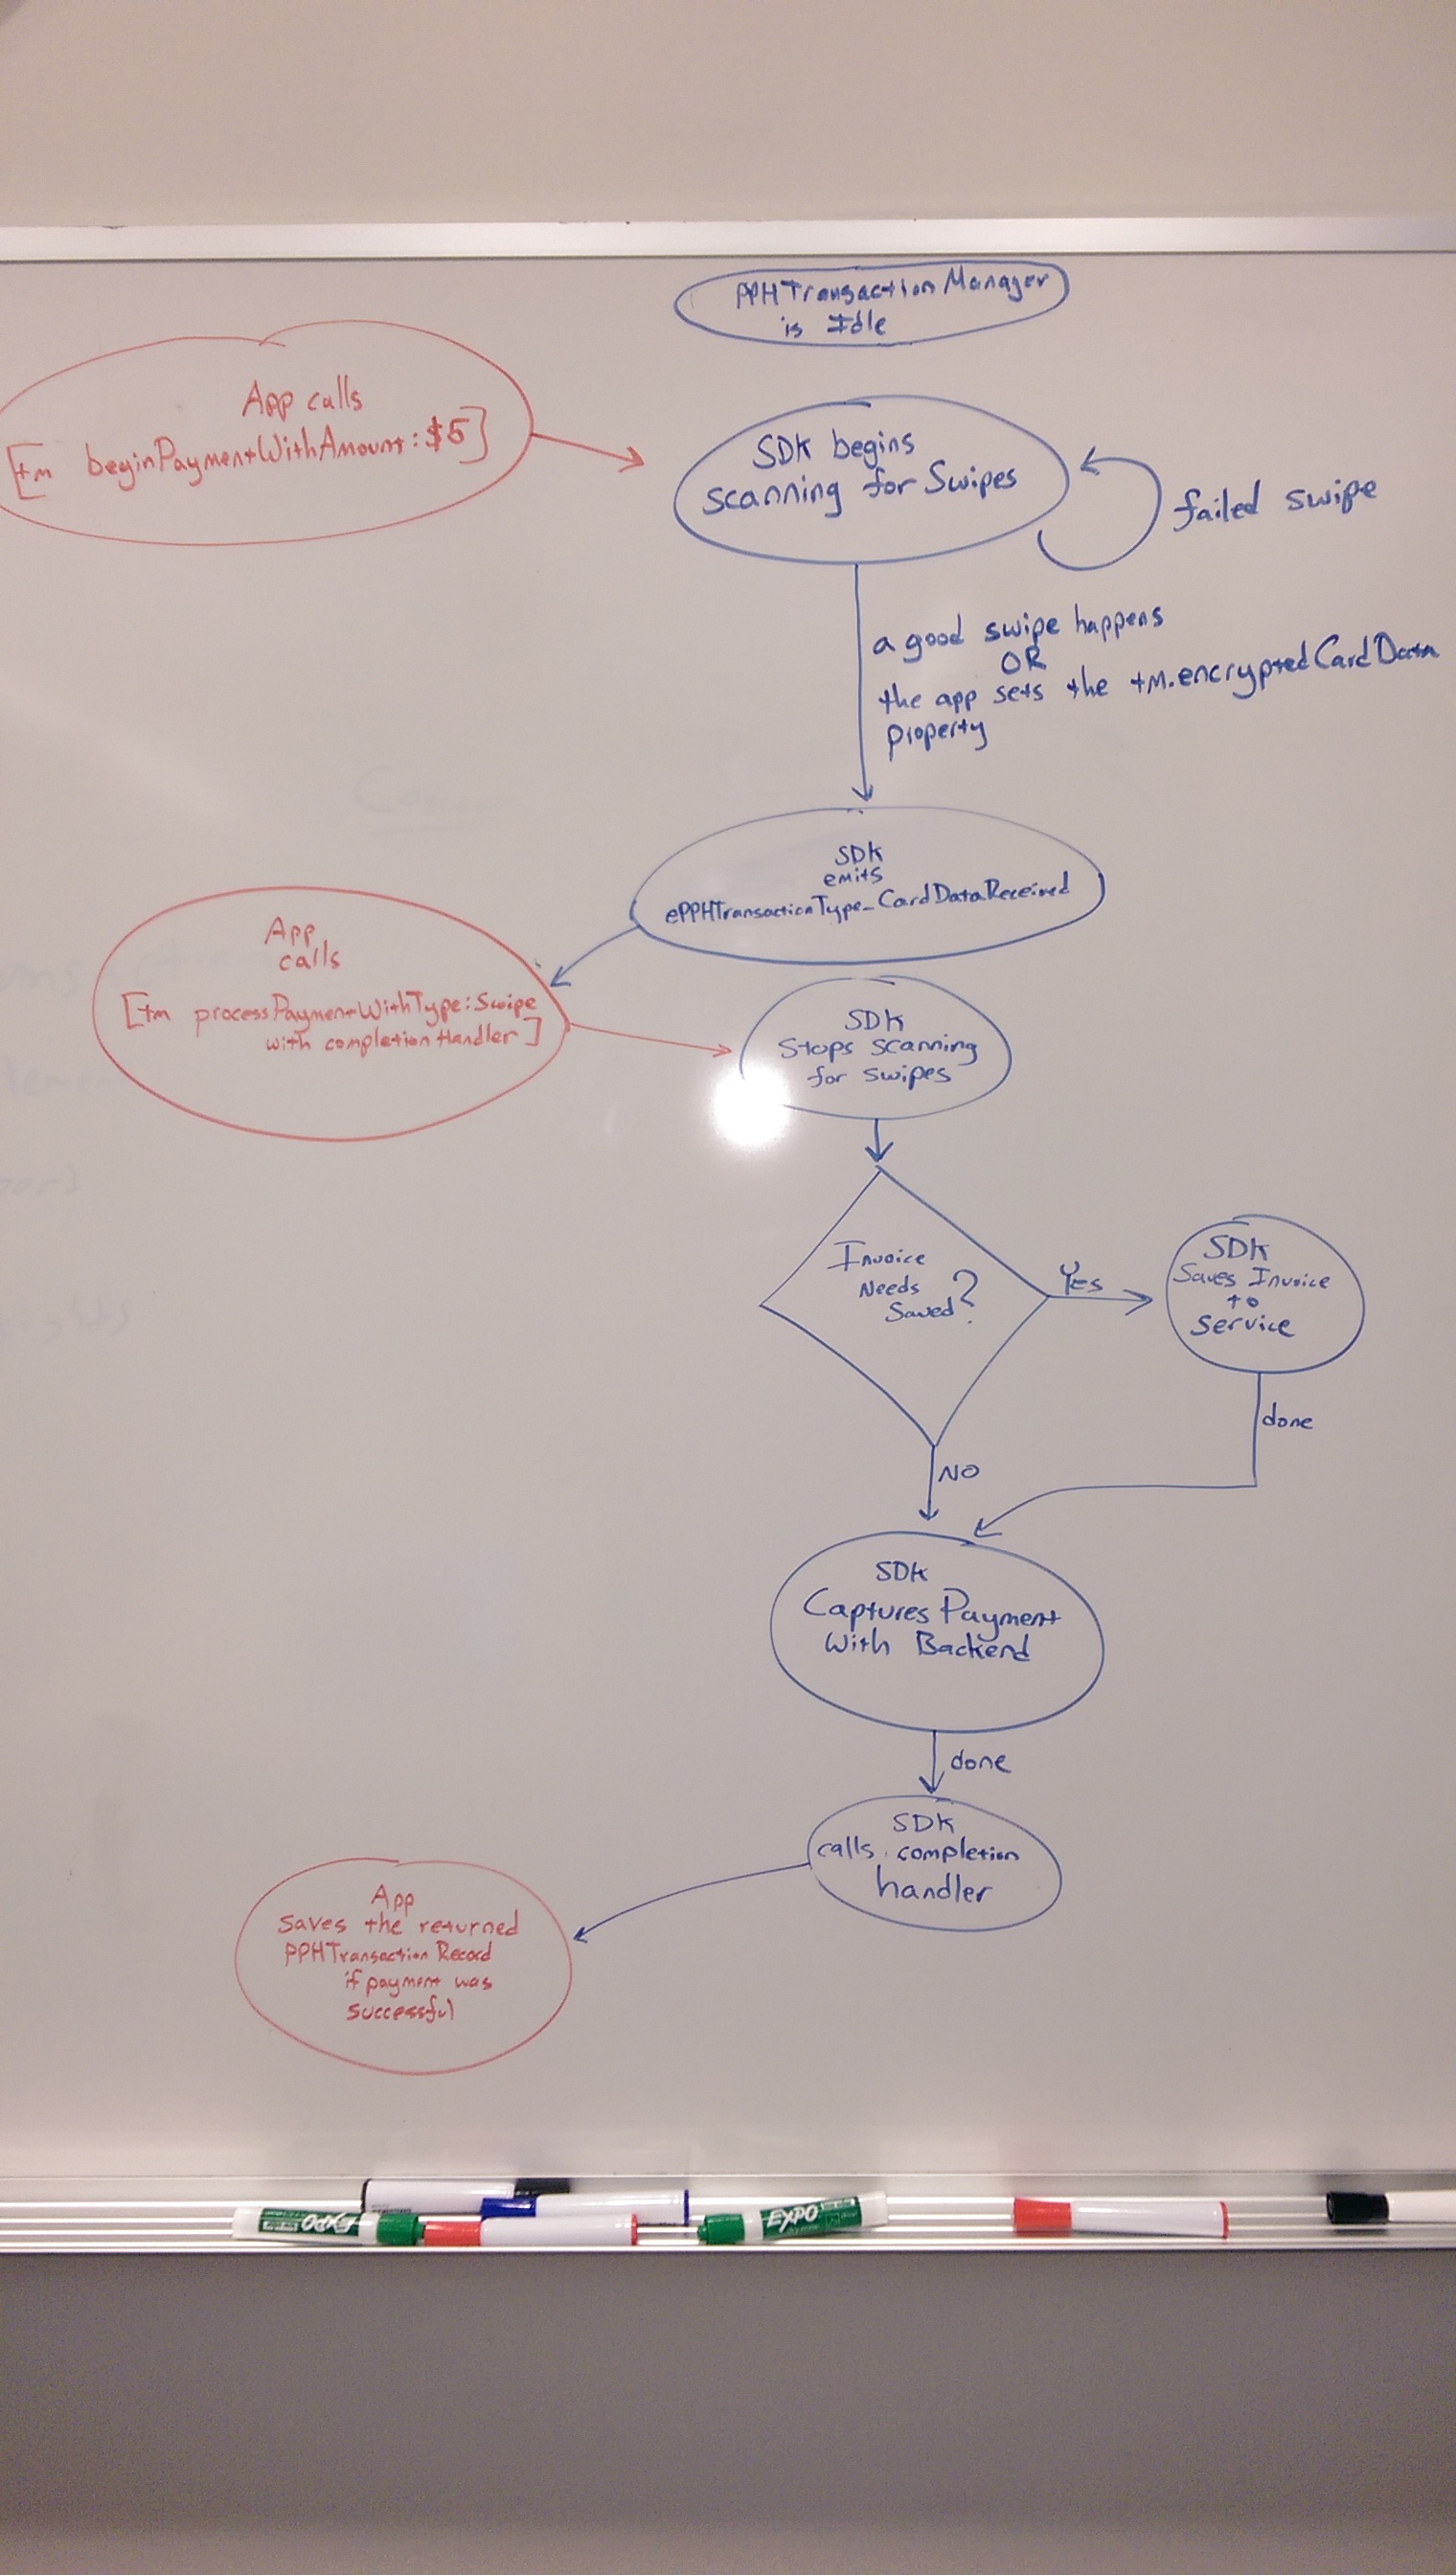 PPHTransactionManager
is Idle
App calls
[tm beginPaymentWithAmount:$5]
SDK begins
scanning for Swipes
failed swipe
a good swipe happens
OR
the app sets the tm.encryptedCardData
property
SDK
emits
ePPHTransactionType_CardDataReceived
App
calls
[tm processPaymentWithType:Swipe
with completionHandler]
SDK
Stops scanning
for swipes
Invoice
Needs
Saved?
Yes
SDK
Saves Invoice
to
Service
done
NO
SDK
Captures Payment
With Backend
done
SDK
calls completion
handler
App
saves the returned
PPHTransactionRecord
if payment was
successful
EXPO
EXPO